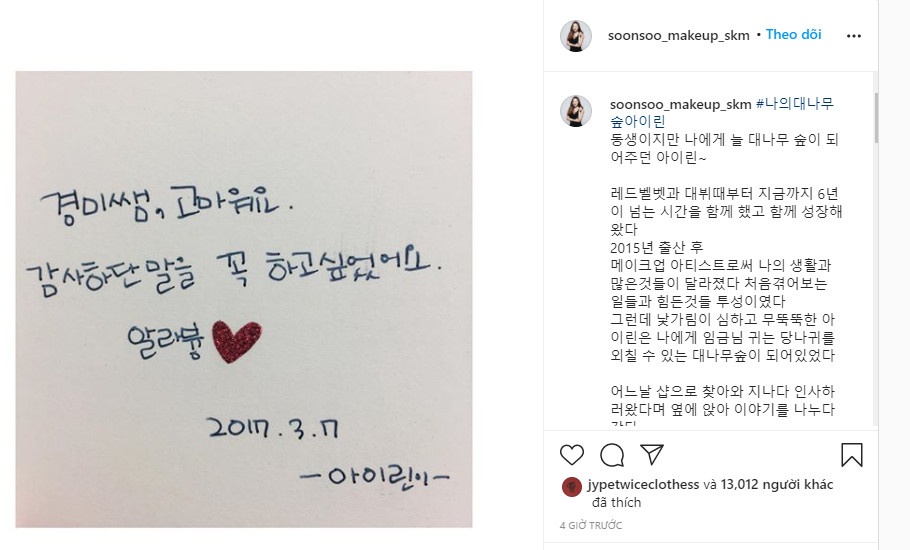 경미쌤, 고마워요.
감사하단 말을 꼭 하고싶었어요.
알라뷰
2017.3.7
-아이린이-
soonsoo_makeup_skm • Theo dõi
soonsoo_makeup_skm #나의대나무
숲아이린
동생이지만 나에게 늘 대나무 숲이 되
어주던 아이린~
레드벨벳과 대뷔때부터 지금까지 6년
이 넘는 시간을 함께 했고 함께 성장해
왔다
2015년 출산 후
메이크업 아티스트로써 나의 생활과
많은것들이 달라졌다 처음겪어보는
일들과 힘든것들 투성이였다
그런데 낯가림이 심하고 무뚝뚝한 아
이린은 나에게 임금님 귀는 당나귀를
외칠 수 있는 대나무숲이 되어있었다
어느날 샵으로 찾아와 지나다 인사하
러왔다며 옆에 앉아 이야기를 나누다
jypetwiceclothess và 13,012 người khác
đã thích
4 GIỜ TRƯỚC